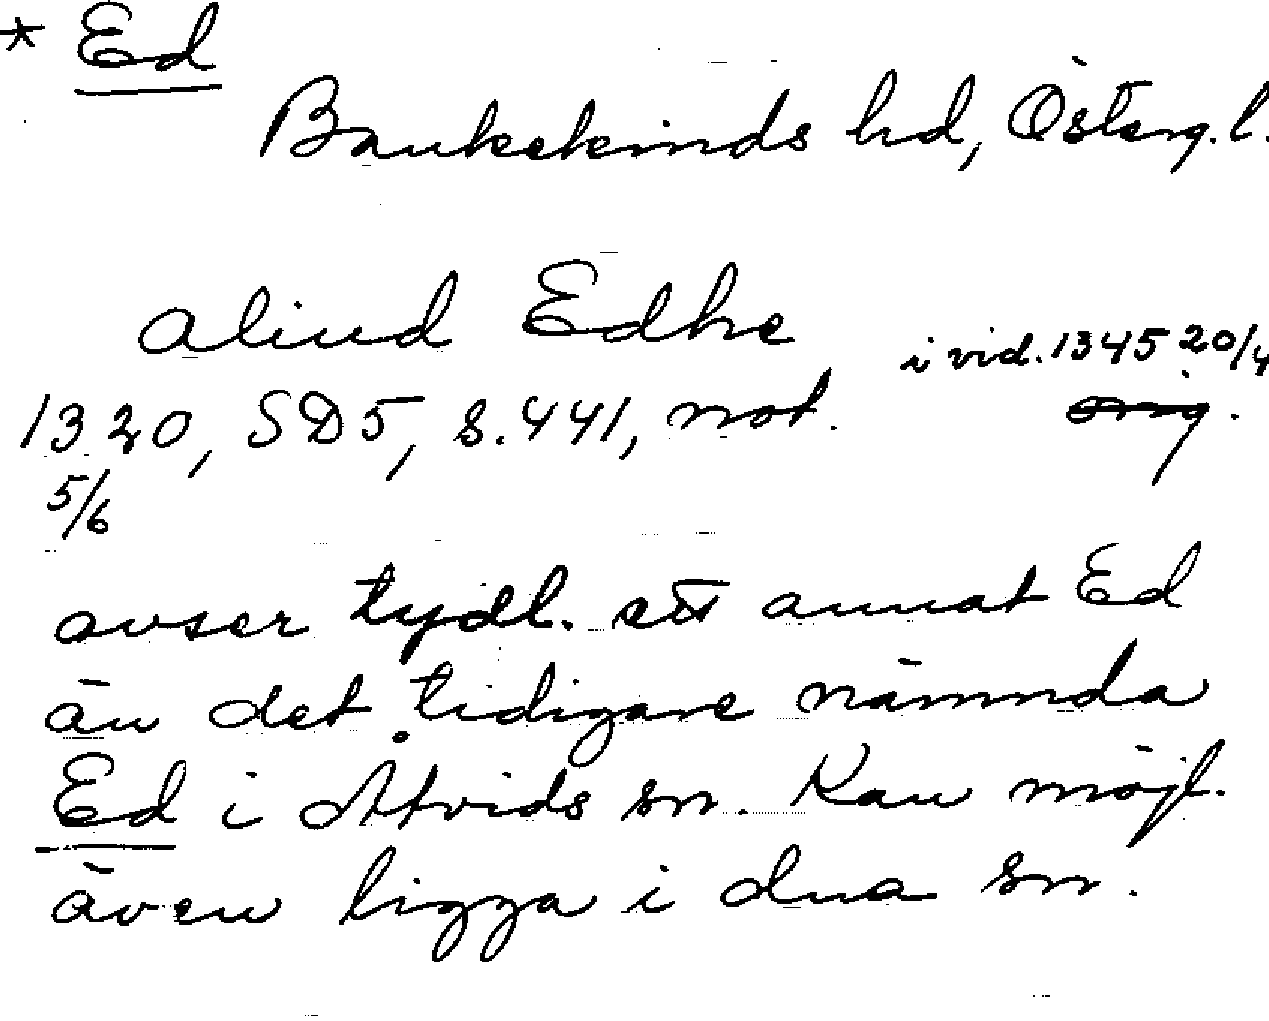 * Ed
Bankekinds hd, Österg.l.
aliud Edhe
i vid. 1345 20/4
1320, SD5, s.441, not. orig.
5/6
avser tydl. ett annat Ed
än det tidigare nämnda
Ed i Åtvids sn. Kan möjl.
även ligga i dna sn.